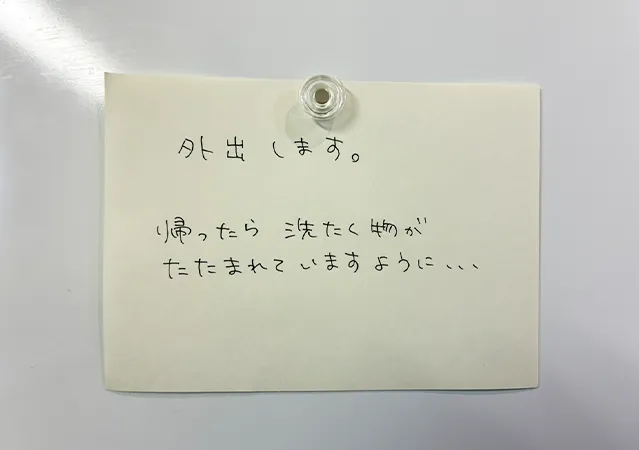 外出します。
帰ったら洗たく物が
たたまれていますように、、、